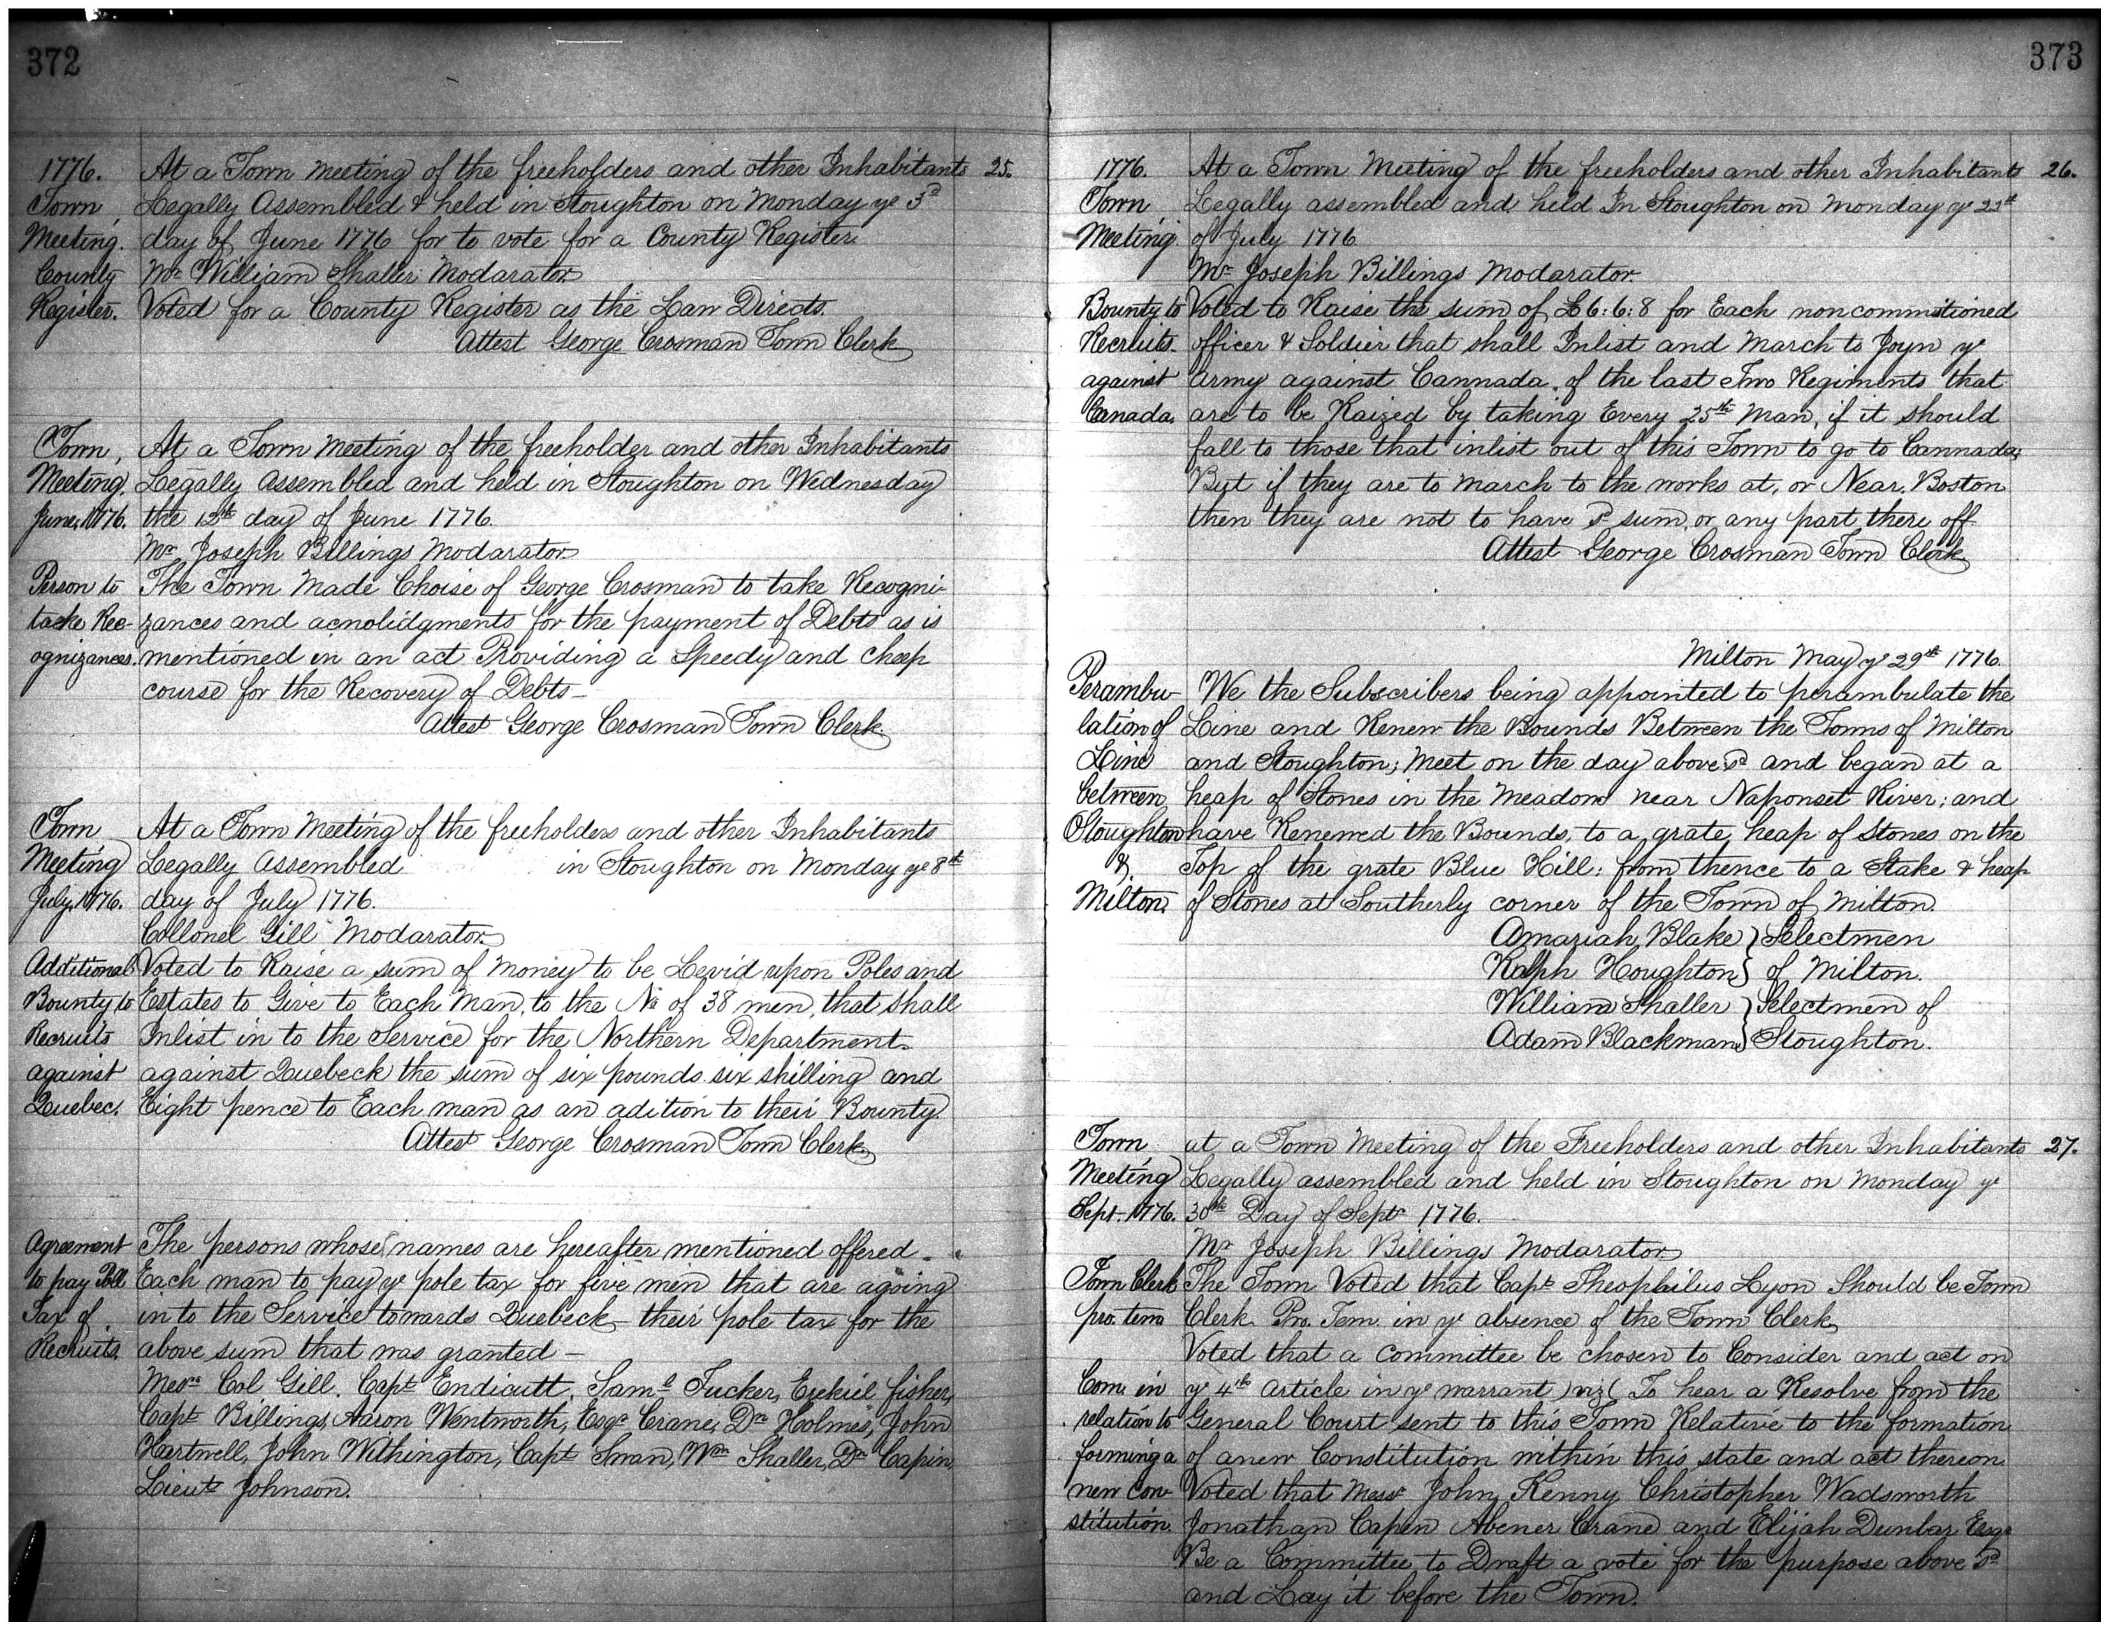 372
1776. At a Town Meeting of the freeholders and other Inhabitants 25.
Town Legally Assembled & held in Stoughton on Monday ye 3d
Meeting. day of June 1776 for to vote for a County Register.
County Mr. William Shaller Modarator.
Register. Voted for a County Register as the Law Directs.
Attest George Crosman Town Clerk
Town, At a Town Meeting of the freeholder and other Inhabitants
Meeting. Legally Assembled and held in Stoughton on Wednesday
June, 1776. the 12th day of June 1776.
Mr. Joseph Billings Modarator
Person to The Town Made Choise of George Crosman to take Recogni-
take Rec- zances and acnolidgments for the payment of Debts as is
ognizances. mentioned in an act Providing a Speedy and cheep
course for the Recovery of Debts—
Attest George Crosman Town Clerk.
Town At a Town Meeting of the freeholders and other Inhabitants
Meeting Legally Assembled in Stoughton on Monday ye 8th
July, 1776. day of July 1776.
Collonel Gill Modarator.
Additional Voted to Raise a sum of Money to be Levid upon Poles and
Bounty to Estates to Give to Each Man, to the No of 38 men, that shall
Recruits Inlist in to the Service for the Northern Department
against against Quebeck the sum of six pounds six shilling and
Quebec. Eight pence to Each man as an adition to their Bounty.
Attest George Crosman Town Clerk.
Agreement The persons whose names are hereafter mentioned offered
to pay Poll Each man to pay ye pole tax for five men that are agoing
Tax of in to the Service towards Quebeck— their pole tax for the
Recruits. above sum that was granted—
Messrs Col Gill. Capt Endicutt, Saml Tucker, Ezekiel fisher,
Capt Billings, Aaron Wentworth, Esqr Crane, Dn Holmes, John
Hartwell, John Withington, Capt Swan, Wm Shaller, Dn Capin,
Lieut Johnson.
373
1776. At a Town Meeting of the freeholders and other Inhabitants 26.
Town Legally assembled and held In Stoughton on Monday ye 22th
Meeting. of July 1776
Mr Joseph Billings Modarator.
Bounty to Voted to Raise the sum of £6:6:8 for Each noncommitioned
Recruits. officer & Soldier that shall Inlist and March to Joyn ye
against Army against Cannada, of the last Two Regiments that
Canada. are to be Raized by taking Every 25th Man, if it should
fall to those that inlist out of this Town to go to Cannada;
But if they are to march to the works at, or Near, Boston
then they are not to have sd sum, or any part there off
Attest George Crosman Town Clerk
Milton May ye 29th 1776.
Perambu- We the Subscribers being appointed to perambulate the
lation of Line and Renew the Bounds Between the Towns of Milton
Line and Stoughton; Meet on the day above sd and began at a
between heap of Stones in the Meadow near Naponset River; and
Stoughton have Renewed the Bounds, to a grate heap of Stones on the
& Top of the grate Blue Hill: from thence to a Stake & heap
Milton. of Stones at Southerly corner of the Town of Milton.
Amariah Blake } Selectmen
Ralph Houghton } of Milton.
William Shaller } Selectmen of
Adam Blackman } Stoughton.
Town at a Town Meeting of the Freeholders and other Inhabitants 27.
Meeting Legally assembled and held in Stoughton on Monday ye
Sept. 1776. 30th Day of Septr 1776.
Mr Joseph Billings Modarator
Town Clerk The Town Voted that Capt Theophilus Lyon Should be Town
pro. tem Clerk Pro. Tem. in ye absence of the Town Clerk,
Voted that a Committee be chosen to Consider and act on
Com. in ye 4th Article in ye warrant) viz( To hear a Resolve from the
relation to General Court sent to this Town Relative to the formation
forming a of a new Constitution within this state and act thereon
new Con- Voted that Messr John Kenny Christopher Wadsworth
stitution. Jonathan Capen Abener Crane and Elijah Dunbar Esqr
Be a Committee to Draft a vote for the purpose above sd
and Lay it before the Town.